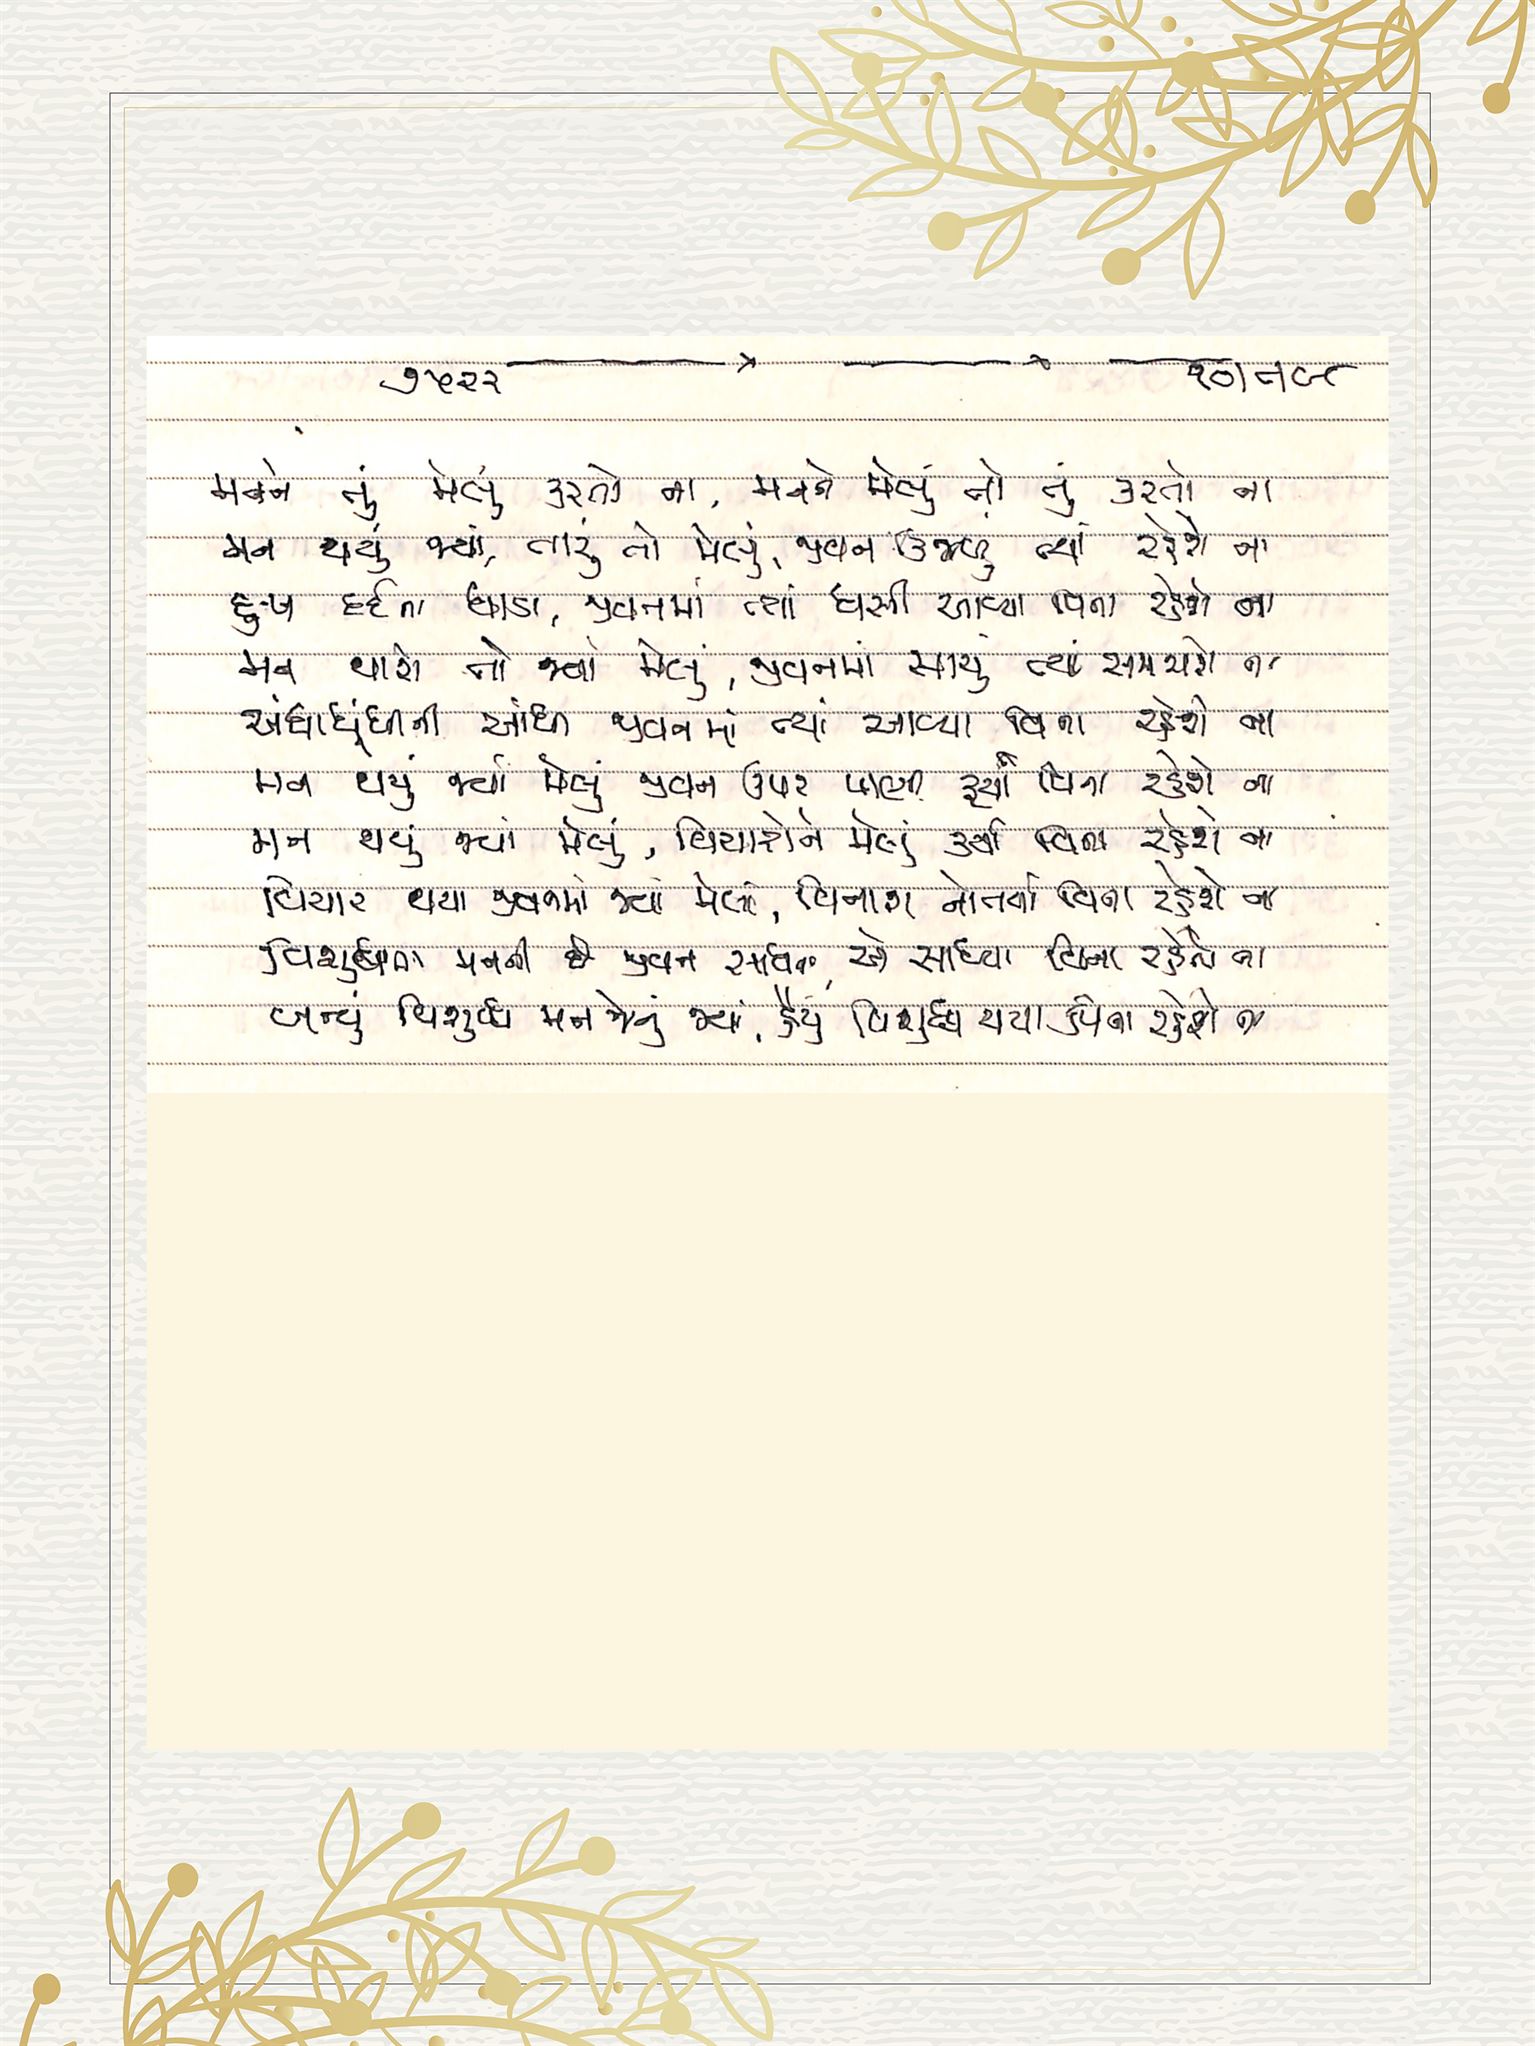 ૭૫૨૨
મનને તું મેલું કરતો ના, મનને મેલું તો તું કરતો ના
મન થયું જ્યાં, તારું તો મેલું, જીવન ઉજળું ત્યાં રહેશે ના
દુઃખ દર્દના ધાડા, જીવનમાં ત્યાં ધસી આવ્યા વિના રહેશે ના
મન થાશે તો જ્યાં મેલું, જીવનમાં સાચું ત્યાં સમજાશે ના
અંધાધૂંધીની આંધી જીવનમાં ત્યાં આવ્યા વિના રહેશે ના
મન થયું જ્યાં મેલું જીવન ઉપર પાણી ફર્યા વિના રહેશે ના
મન થયું જ્યાં મેલું, વિચારોને મેલું કર્યા વિના રહેશે ના
વિચાર થયા જીવનમાં જ્યાં મેલાં, વિનાશ નોતર્યા વિના રહેશે ના
વિશુદ્ધતા મનની છે જીવન સાધના, એ સાધ્યા વિના રહેતો ના
બન્યું વિશુદ્ધ મન જેનું જ્યાં, હૈયું વિશુદ્ધ થયા વિના રહેશે ના